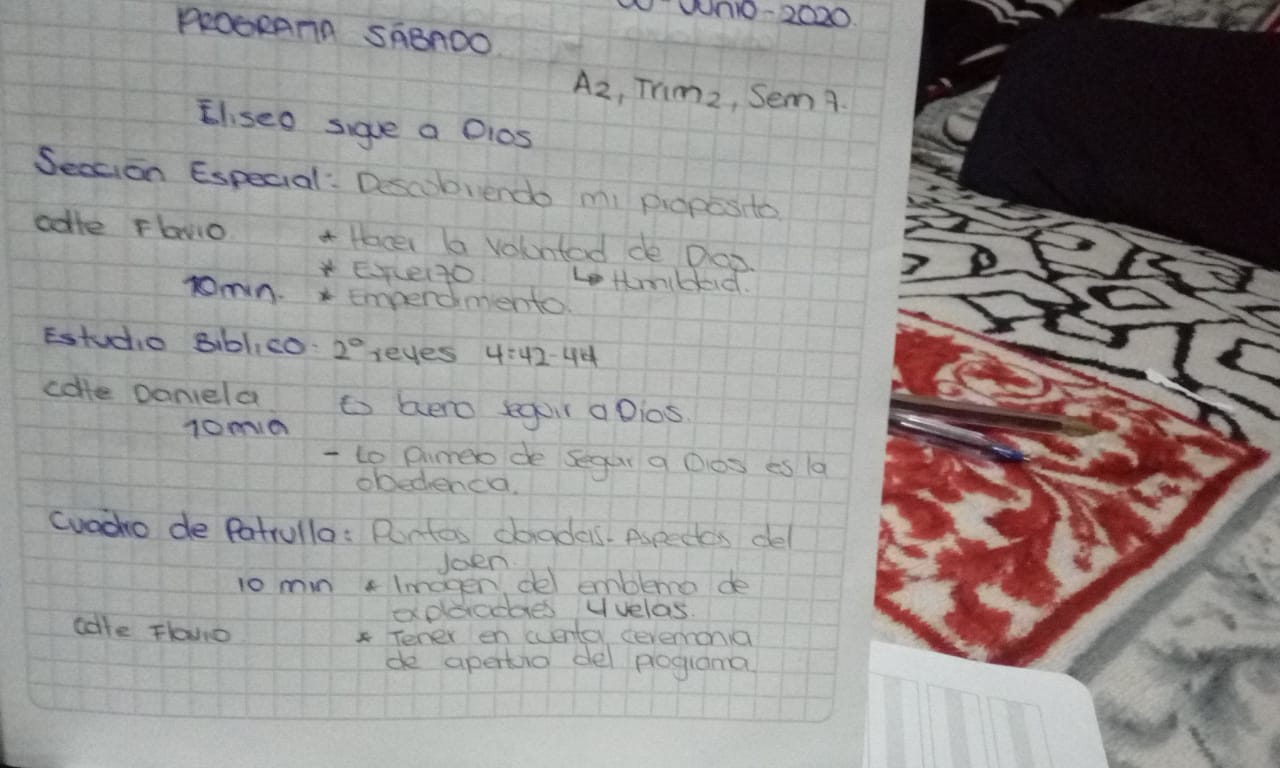 Junio-2020.
PROGRAMA SÁBADO
A2, Trim2, Sem 7.
Eliseo sigue a Dios
Sección Especial: Descobriendo mi proposito.
cdte Flavio. * Hacer la voluntad de Dios.
* Esfuerzo ↳ Humildad.
10min. * Emperdimiento.
Estudio Biblico: 2° reyes 4:42-44
cdte Daniela Es bueno seguir a Dios.
10min
- Lo primero de seguir a Dios es la
obediencia.
Cuadro de Patrulla: Puntas doradas. Aspectos del
Joven.
10 min * Imagen del emblema de
exploradores 4 velas.
cdte Flavio * Tener en cuenta ceremonia
de apertura del programa